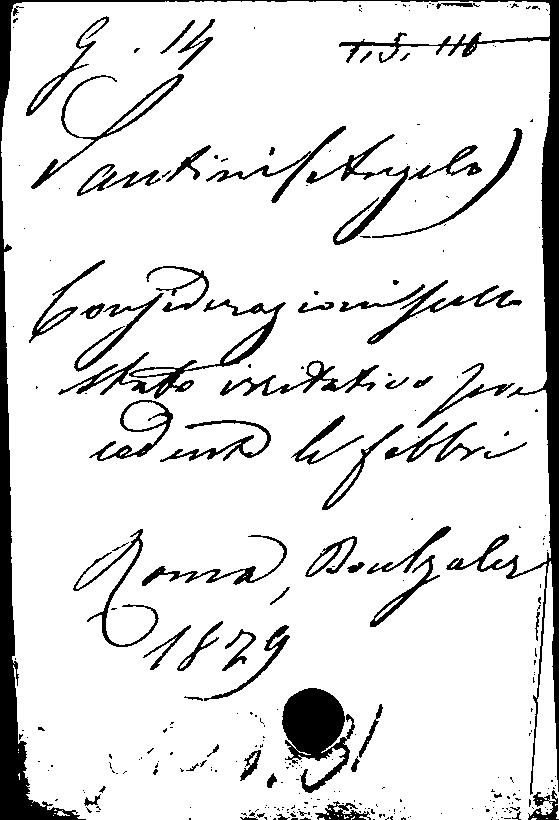 g. 14 1, 5, 110
Santini (Angelo)
Considerazioni sullo
stato irritativo pre
cedente le febbri
Roma, Boulzaler
1829
31